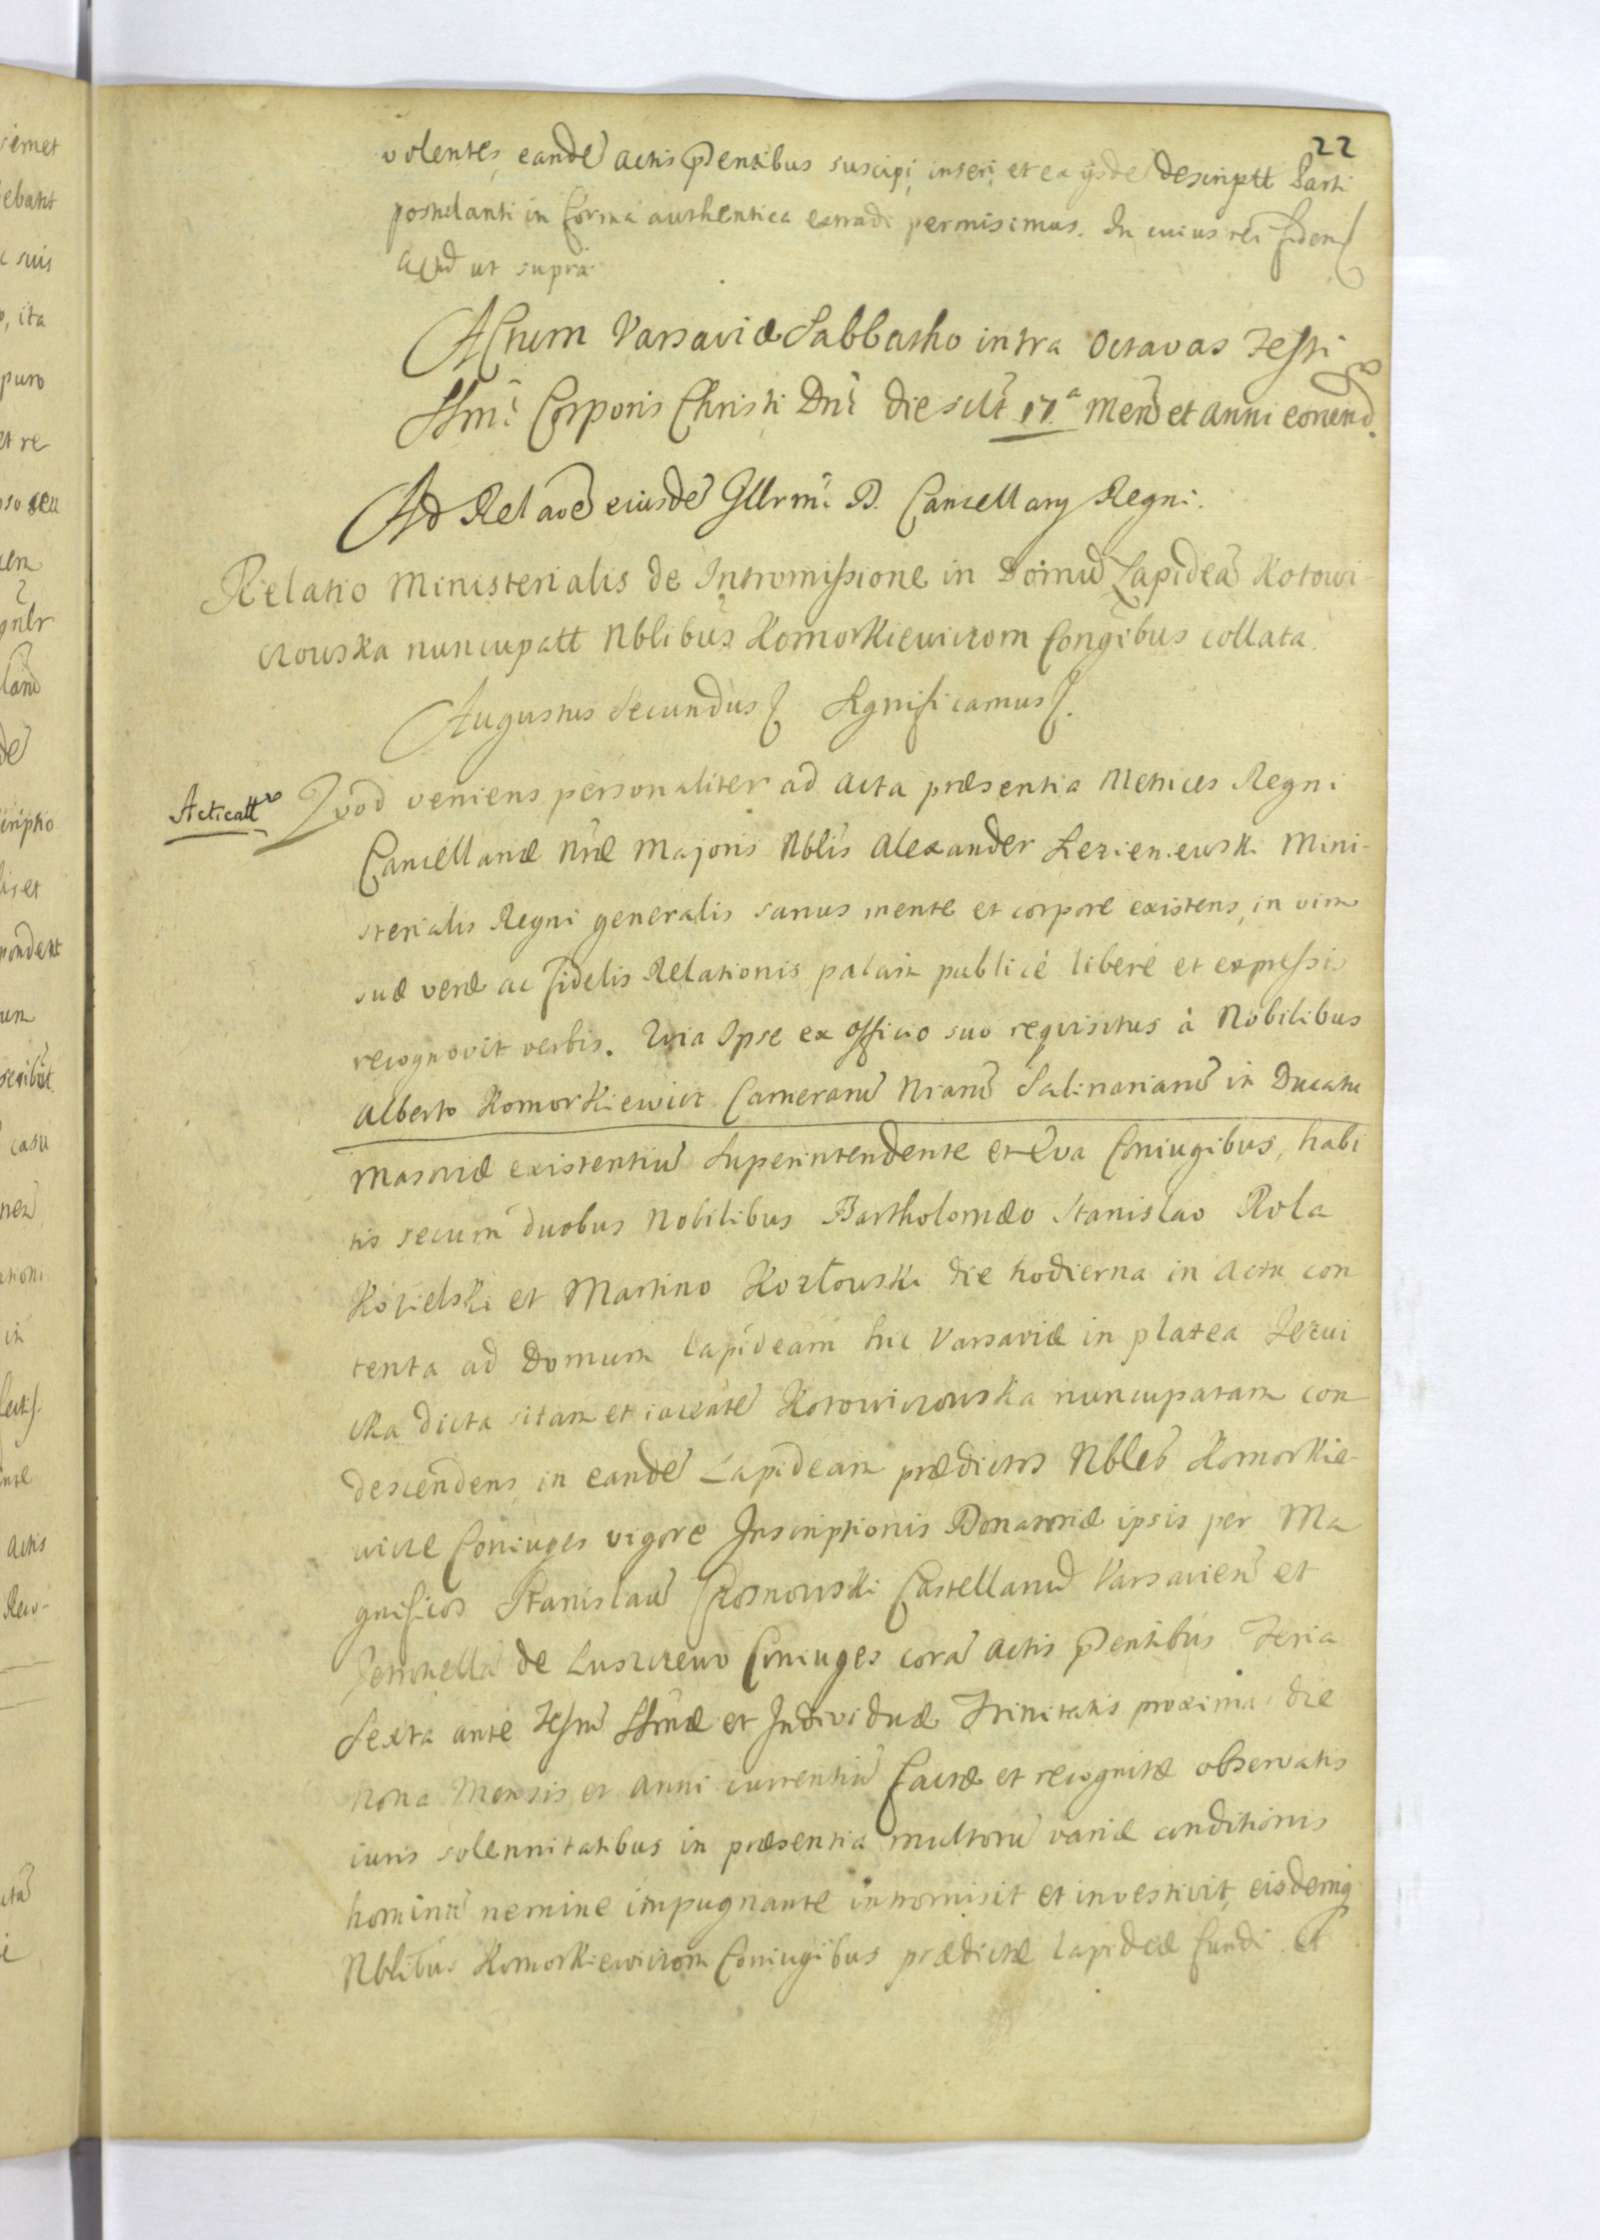 22
volentes, eandẽ actis pñtibus suscipi, inseri, et ex ijsdẽ descriptt Parti
postulanti in forma authentica extradi permisimus. In cuius rei fidem
Actũ ut supra
Actum Varsaviæ Sabbatho intra Octavas Festi
SSmi Corporis Christi Dnĩ die scilt 17ª Meñ et anni eorund.
Ad Relaoẽ eiusdẽ Illrmi D. Cancellarij Regni.
Relatio Ministerialis de Intromissione in Domũ Lapideã Kotowi-
czowska nuncupatt Nblibus Komorkiewiczom Congibus collata.
Augustus Secundus Significamus
Acticatt
Quod veniens personaliter ad acta præsentia Metrices Regni
Cancellariæ Nræ Majoris Nblis Alexander Mini-
sterialis Regni generalis sanus mente et corpore existens, in vim
suæ veræ ac fidelis Relationis palam publicè liberè et expressis
recognovit verbis. Quia Ipse ex Officio suo requisitus à Nobilibus
Alberto Komorkiewicz Camerarũ Nrarũ Salinariarũ in Ducatu
Masoviæ existentiũ Superintendente et Eva Coniugibus, habi
tis secum duobus Nobilibus Bartholomæo Stanislao Rola
Kozielski et Martino Kozłowski die hodierna in actu con
tenta ad Domum lapideam hic Varsaviæ in platea Jezui
cka dicta sitam et iacentẽ Kotowiczowska nuncupatam con
descendens, in eandẽ Lapideam prædictos Nbles Komorkie-
wicze Coniuges vigore Inscriptionis Donatoriæ ipsis per Ma
gnificos Stanislaũ Krosnowski Castellanũ Varsavieñ et
Petronellã de Luszczewo Coniuges corã actis pñtibus Feria
Sexta ante Festũ SSmæ et Individuæ Trinitatis proxima die
nona Mensis et anni currentiũ factæ et recognitæ observatis
iuris solennitatibus in præsentia multorũ variæ conditionis
hominũ nemine impugnante intromisit et investivit, eisdemq
Nblibus Komorkiewiczom Coniugibus prædictæ lapideæ fundi et